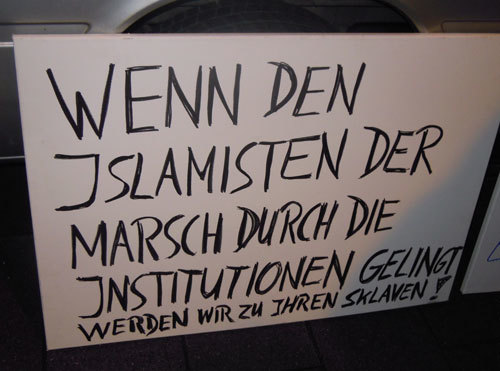 WENN DEN
ISLAMISTEN DER
MARSCH DURCH DIE
INSTITUTIONEN GELINGT
WERDEN WIR ZU IHREN SKLAVEN!